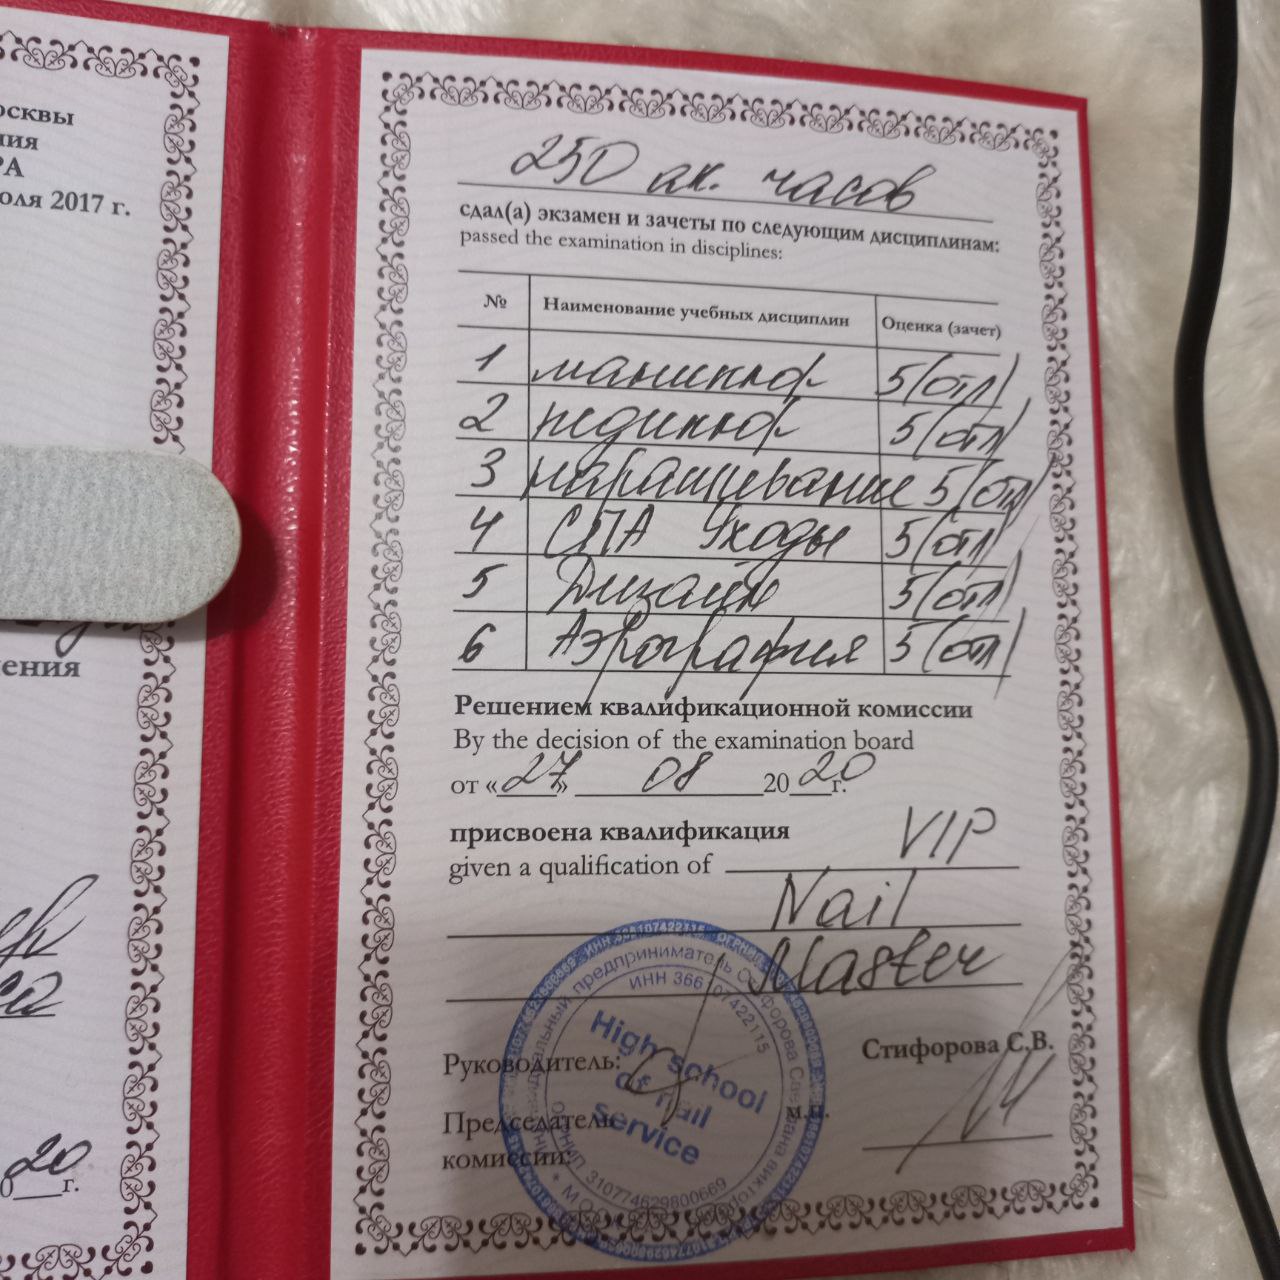 осквы
ния
РА
оля 2017 г.
ения
20 г.
250 ак. часов
сдал(а) экзамен и зачеты по следующим дисциплинам:
passed the examination in disciplines:
№ Наименование учебных дисциплин Оценка (зачет)
1 маникюр 5 (отл)
2 педикюр 5 (отл)
3 наращивание 5 (отл)
4 СПА Уходы 5 (отл)
5 Дизайн 5 (отл)
6 Аэрография 5 (отл)
Решением квалификационной комиссии
By the decision of the examination board
от «27» 08 2020 г.
присвоена квалификация
given a qualification of VIP
Nail
Master
Руководитель: Стифорова С.В.
Председатель м.п.
комиссии:
индивидуальный предприниматель Стифорова Светлана Викторовна
ИНН 366107422115
High school
of nail
service
ОГРНИП 310774629800669